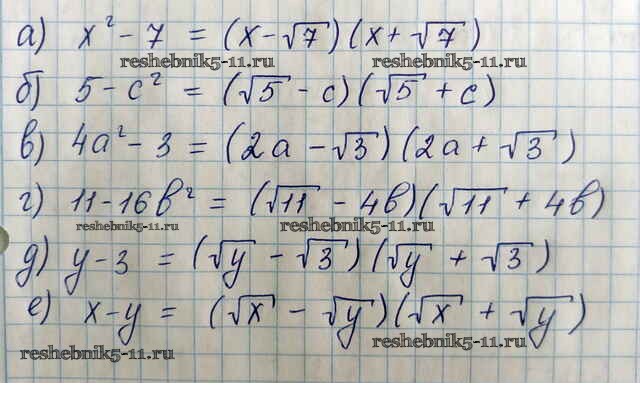 а) x² - 7 = (x - √7)(x + √7)
reshebnik5-11.ru reshebnik5-11.ru
б) 5 - c² = (√5 - c)(√5 + c)
в) 4a² - 3 = (2a - √3)(2a + √3)
г) 11 - 16b² = (√11 - 4b)(√11 + 4b)
reshebnik5-11.ru reshebnik5-11.ru
д) y - 3 = (√y - √3)(√y + √3)
е) x - y = (√x - √y)(√x + √y)
reshebnik5-11.ru reshebnik5-11.ru